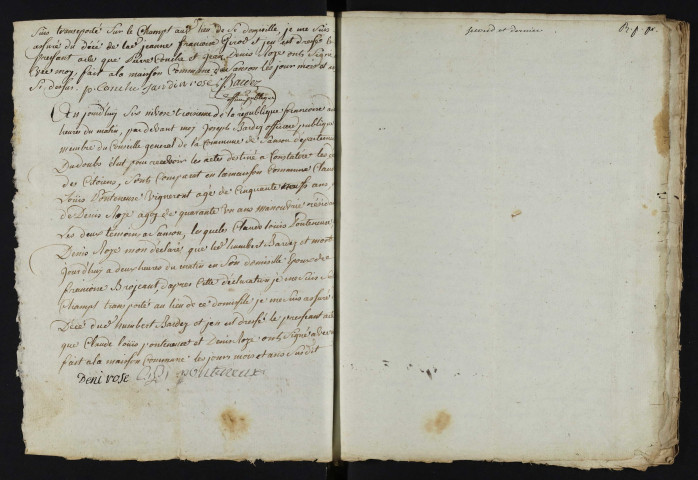 Suis transporté Sur le Champt aud lieu de Si domicille, je me Suis
assuré du décé de la jeanne francoise Girod et jen est dressé le
presant acte que Pierre Conclu et jean Denis Roze onts Signé
avec moy, fait a la maison Commune de Sanson les jour mois et an
Si desus. p. Conclu jan di w rose J Bardey
officier publique
Au jourdhuy Six nivose troisieme de la republique francoise a
heures du matin, par devant moy Joseph Bardey officier publique
membre du Conseille general de la Commune de Sanson departement
Dudoubs élut pour recevoir les actes destiné a Constatere les
des Citoiens, Sonts Comparut en la maison Commune Claude
Loüis Pontereuse vigneront agé de Cinquante neufs ans
de Denis Roze agez de quarante un ans manouvrié
Les deux temoins a Sanson, les quelles Claude louis Pontereuse
Denis Roze mon déclaré que les humbert Bardey et mort
jourd'huy a deux heures du matin en Son domicille Epoux de
francoise Brojeaut, d'apres Cette déclaration je me Suis Sur
Champt transporté au lieu de ce domicille je me Suis assuré
Décé du humbert Bardey et jen est dressé le presant acte
que Claude louis pontereuse et Denis Roze onts Signé avec
fait a la maison Commune les jours mois et ans Susdit
Deni rose C L pontereux
second et dernier